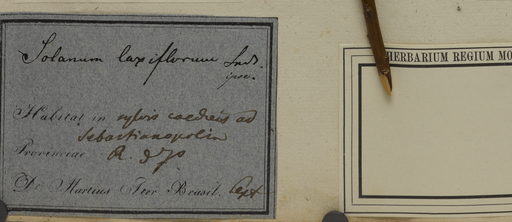 Solanum laxiflorum Inds.
ipse.
Habitat in sylvis caeduis ad
Sebastianopolin
Provinciae R. d J°
Dr. Martius Iter Brasil. Sept
HERBARIUM REGIUM MO